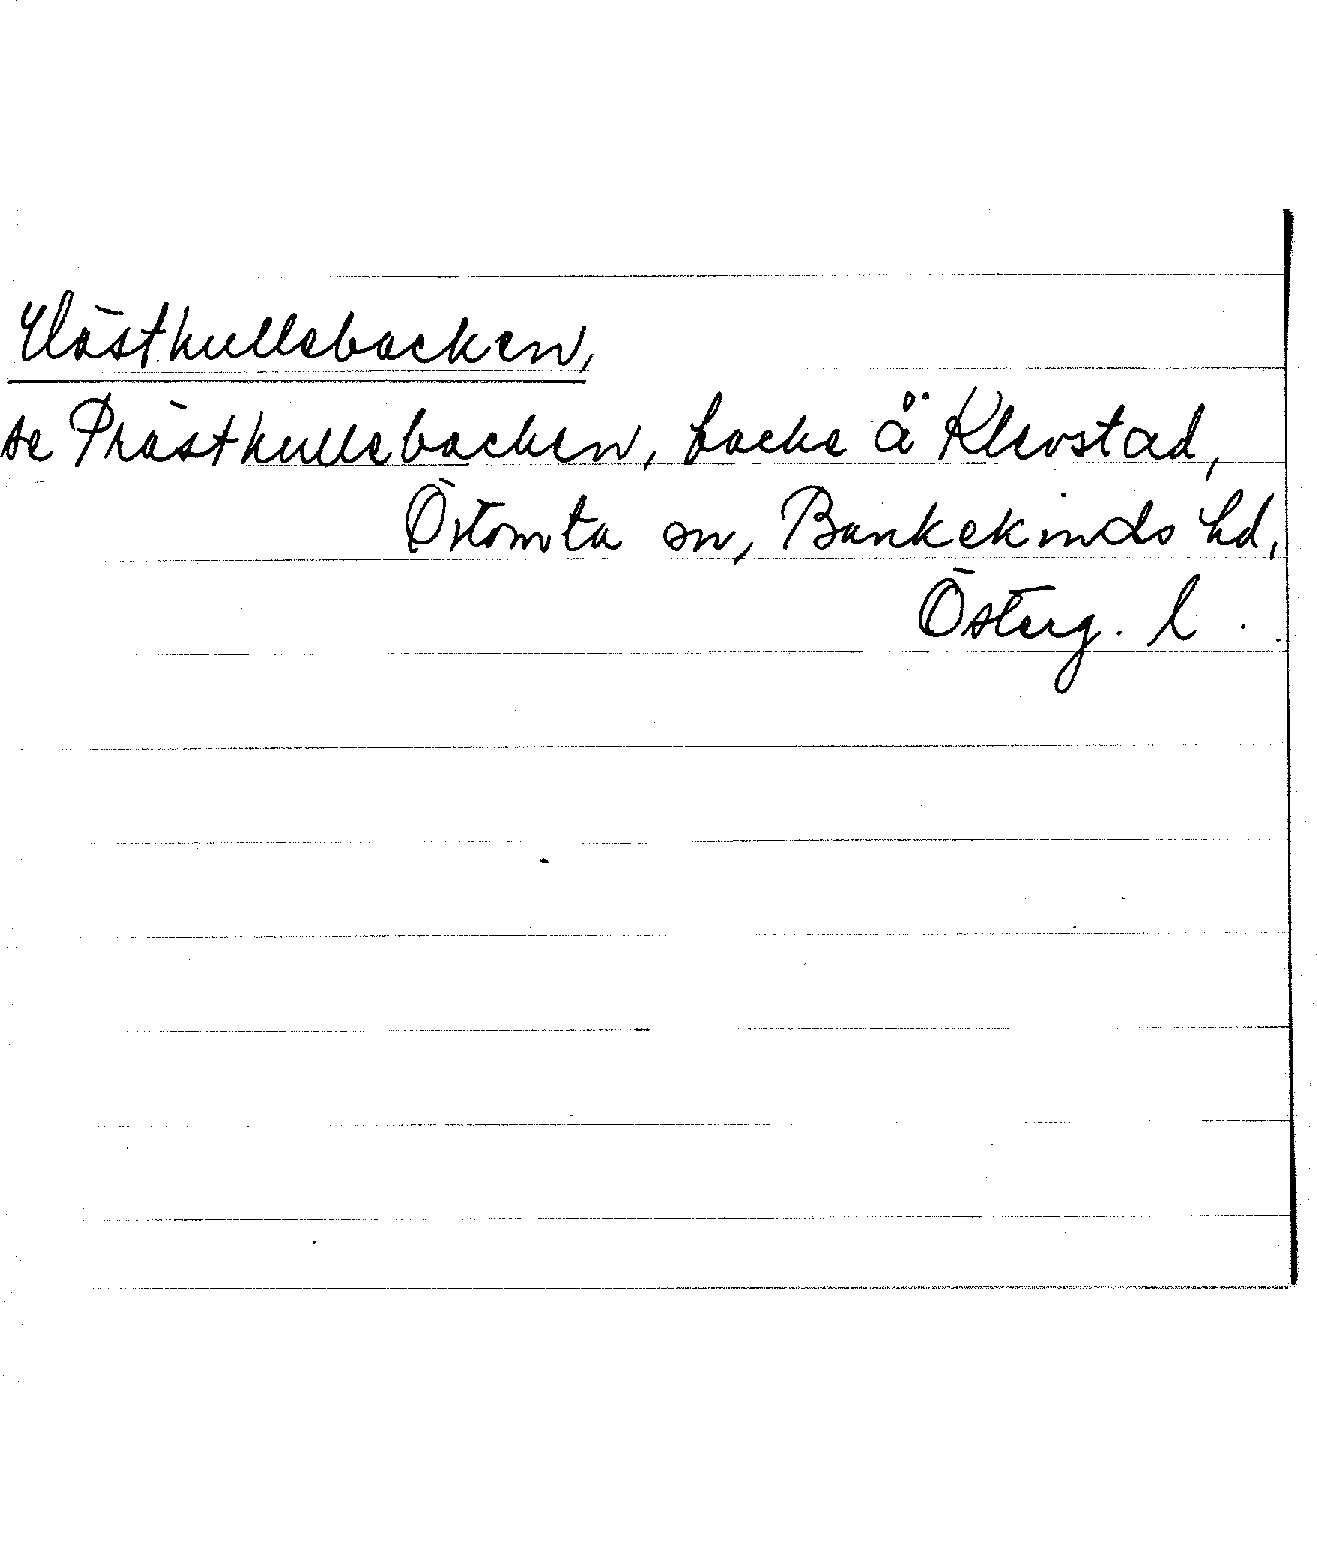 Västkullebacken,
se Prästkullebacken, backe å Klevstad,
Östomta sn, Bankekinds hd,
Österg. l.